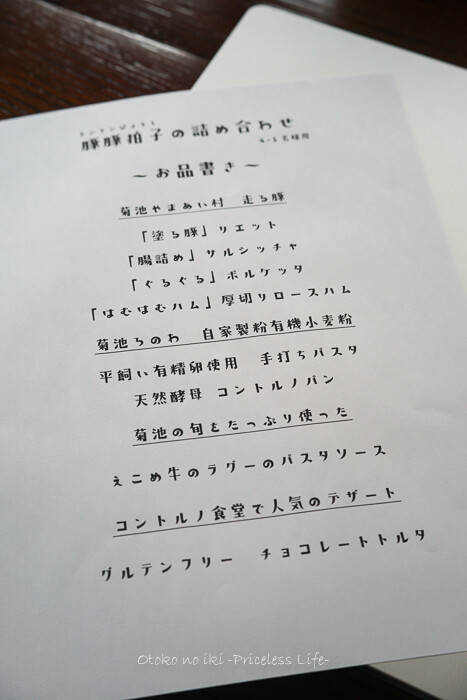 トントンびょうし
豚豚拍子の詰め合わせ
4~5名様用
~お品書き~
菊池やまあい村 走る豚
「塗る豚」リエット
「腸詰め」サルシッチャ
「ぐるぐる」ポルケッタ
「はむはむハム」厚切りロースハム
菊池ろのわ 自家製粉有機小麦粉
平飼い有精卵使用 手打ちパスタ
天然酵母 コントルノパン
菊池の旬をたっぷり使った
えこめ牛のラグーのパスタソース
コントルノ食堂で人気のデザート
グルテンフリー チョコレートトルタ
Otoko no iki -Priceless Life-